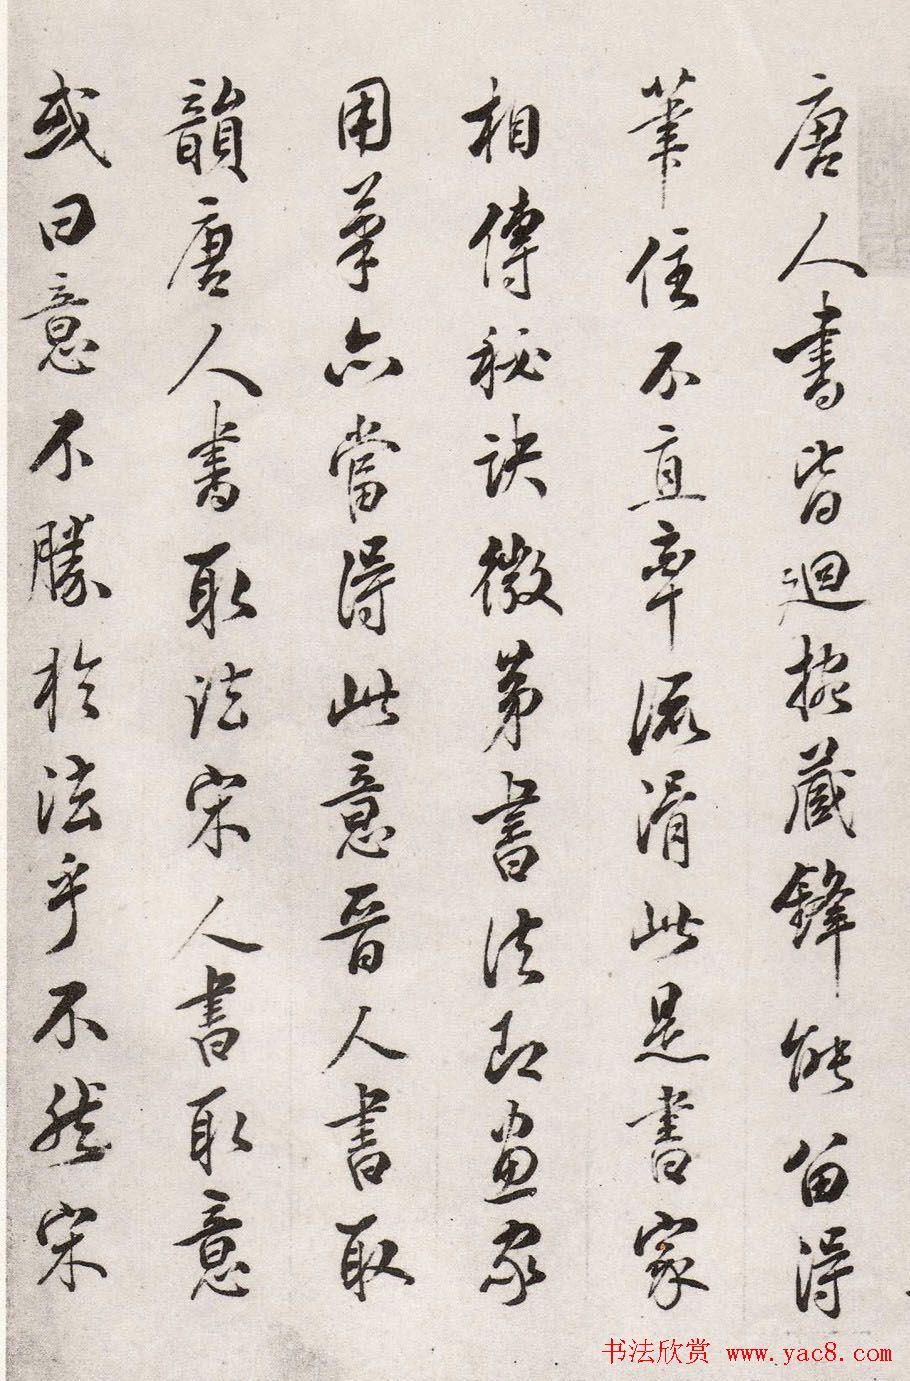 唐人書皆迴腕藏鋒能留得
筆住不直率流滑此是書家
相傳秘訣微第書法即畫家
用筆亦當得此意晉人書取
韻唐人書取法宋人書取意
或曰意不勝於法乎不然宋
书法欣赏 www.yac8.com